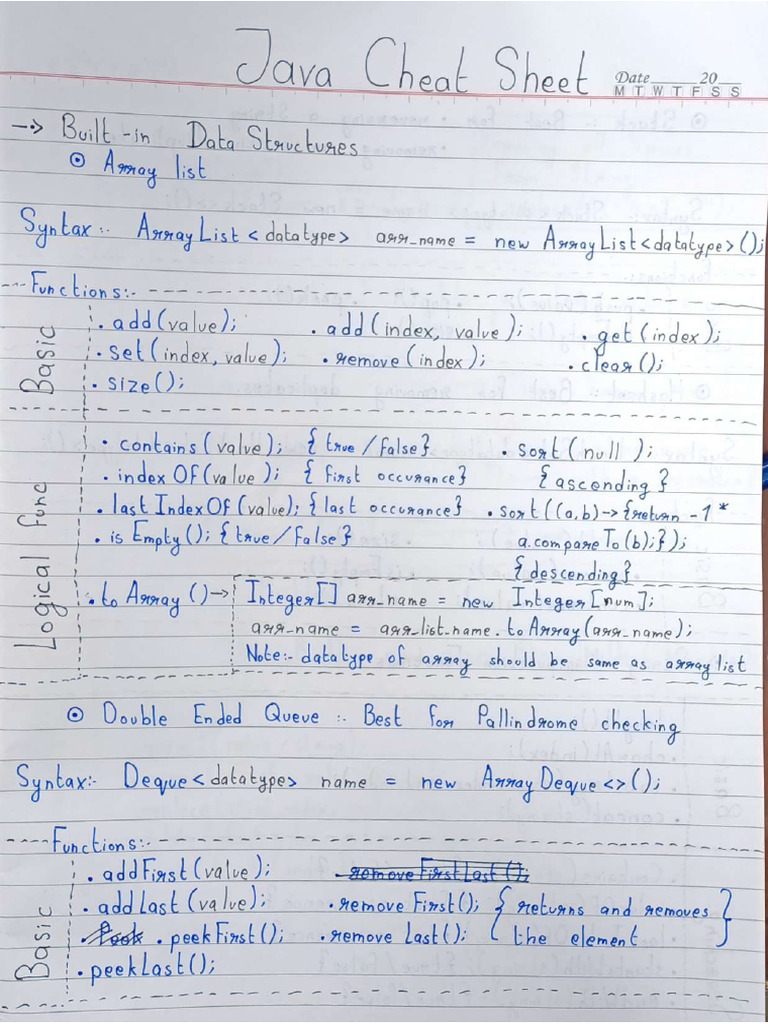 Java Cheat Sheet
Date 20
M T W T F S S
-> Built-in Data Structures
⊙ Array list
Syntax:- ArrayList<datatype> arr_name = new ArrayList<datatype>();
Functions:-
Basic
. add(value); . add(index, value); . get(index);
. set(index, value); . remove(index); . clear();
. size();
Logical func
. contains(value); {true/false} . sort(null);
. indexOf(value); {first occurance} {ascending}
. lastIndexOf(value); {last occurance} . sort((a,b)->{return -1*
. isEmpty(); {true/false} a.compareTo(b);});
{descending}
. toArray()-> Integer[] arr_name = new Integer[num];
arr_name = arr_list_name.toArray(arr_name);
Note:- datatype of array should be same as array list
⊙ Double Ended Queue :- Best for Pallindrome checking
Syntax:- Deque<datatype> name = new ArrayDeque<>();
Functions:-
Basic
. addFirst(value); . removeFirstLast();
. addLast(value); . removeFirst(); {returns and removes
. Peek . peekFirst(); . removeLast(); the element}
. peekLast();